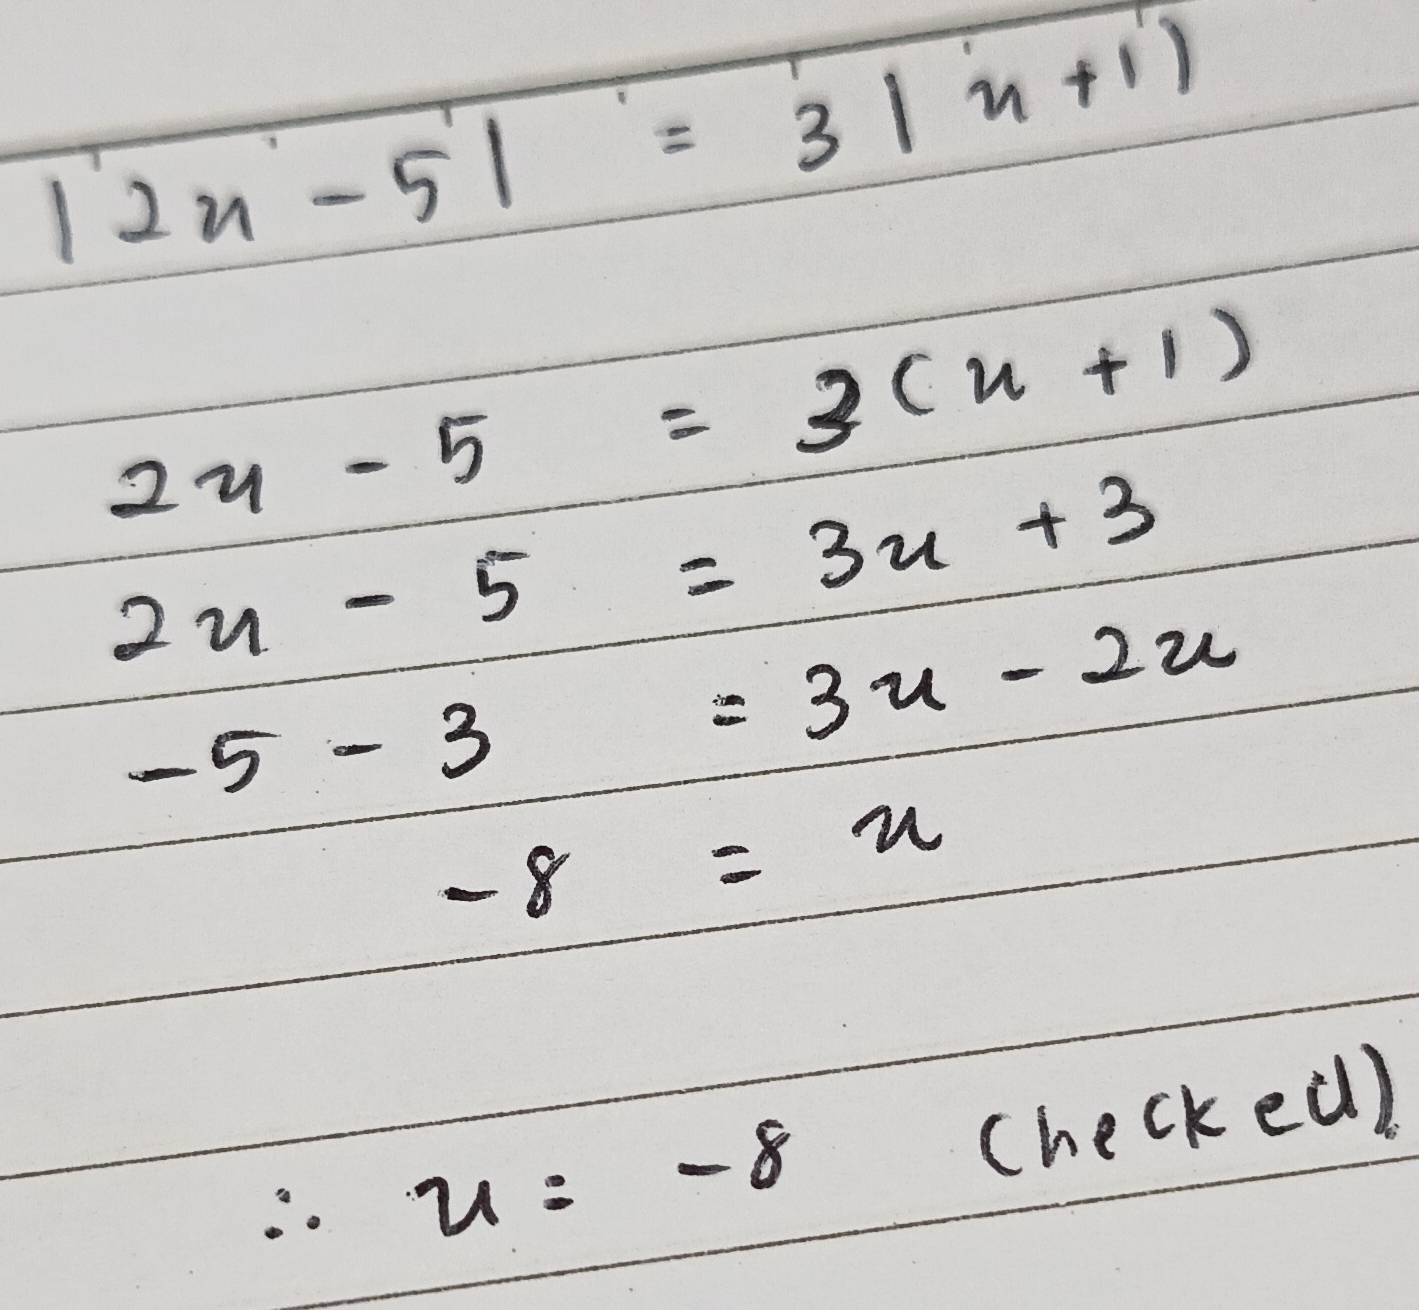 |2x - 5| = 3|x + 1)
2x - 5 = 3(x + 1)
2x - 5 = 3x + 3
-5 - 3 = 3x - 2x
-8 = x
∴ x = -8 (checked)